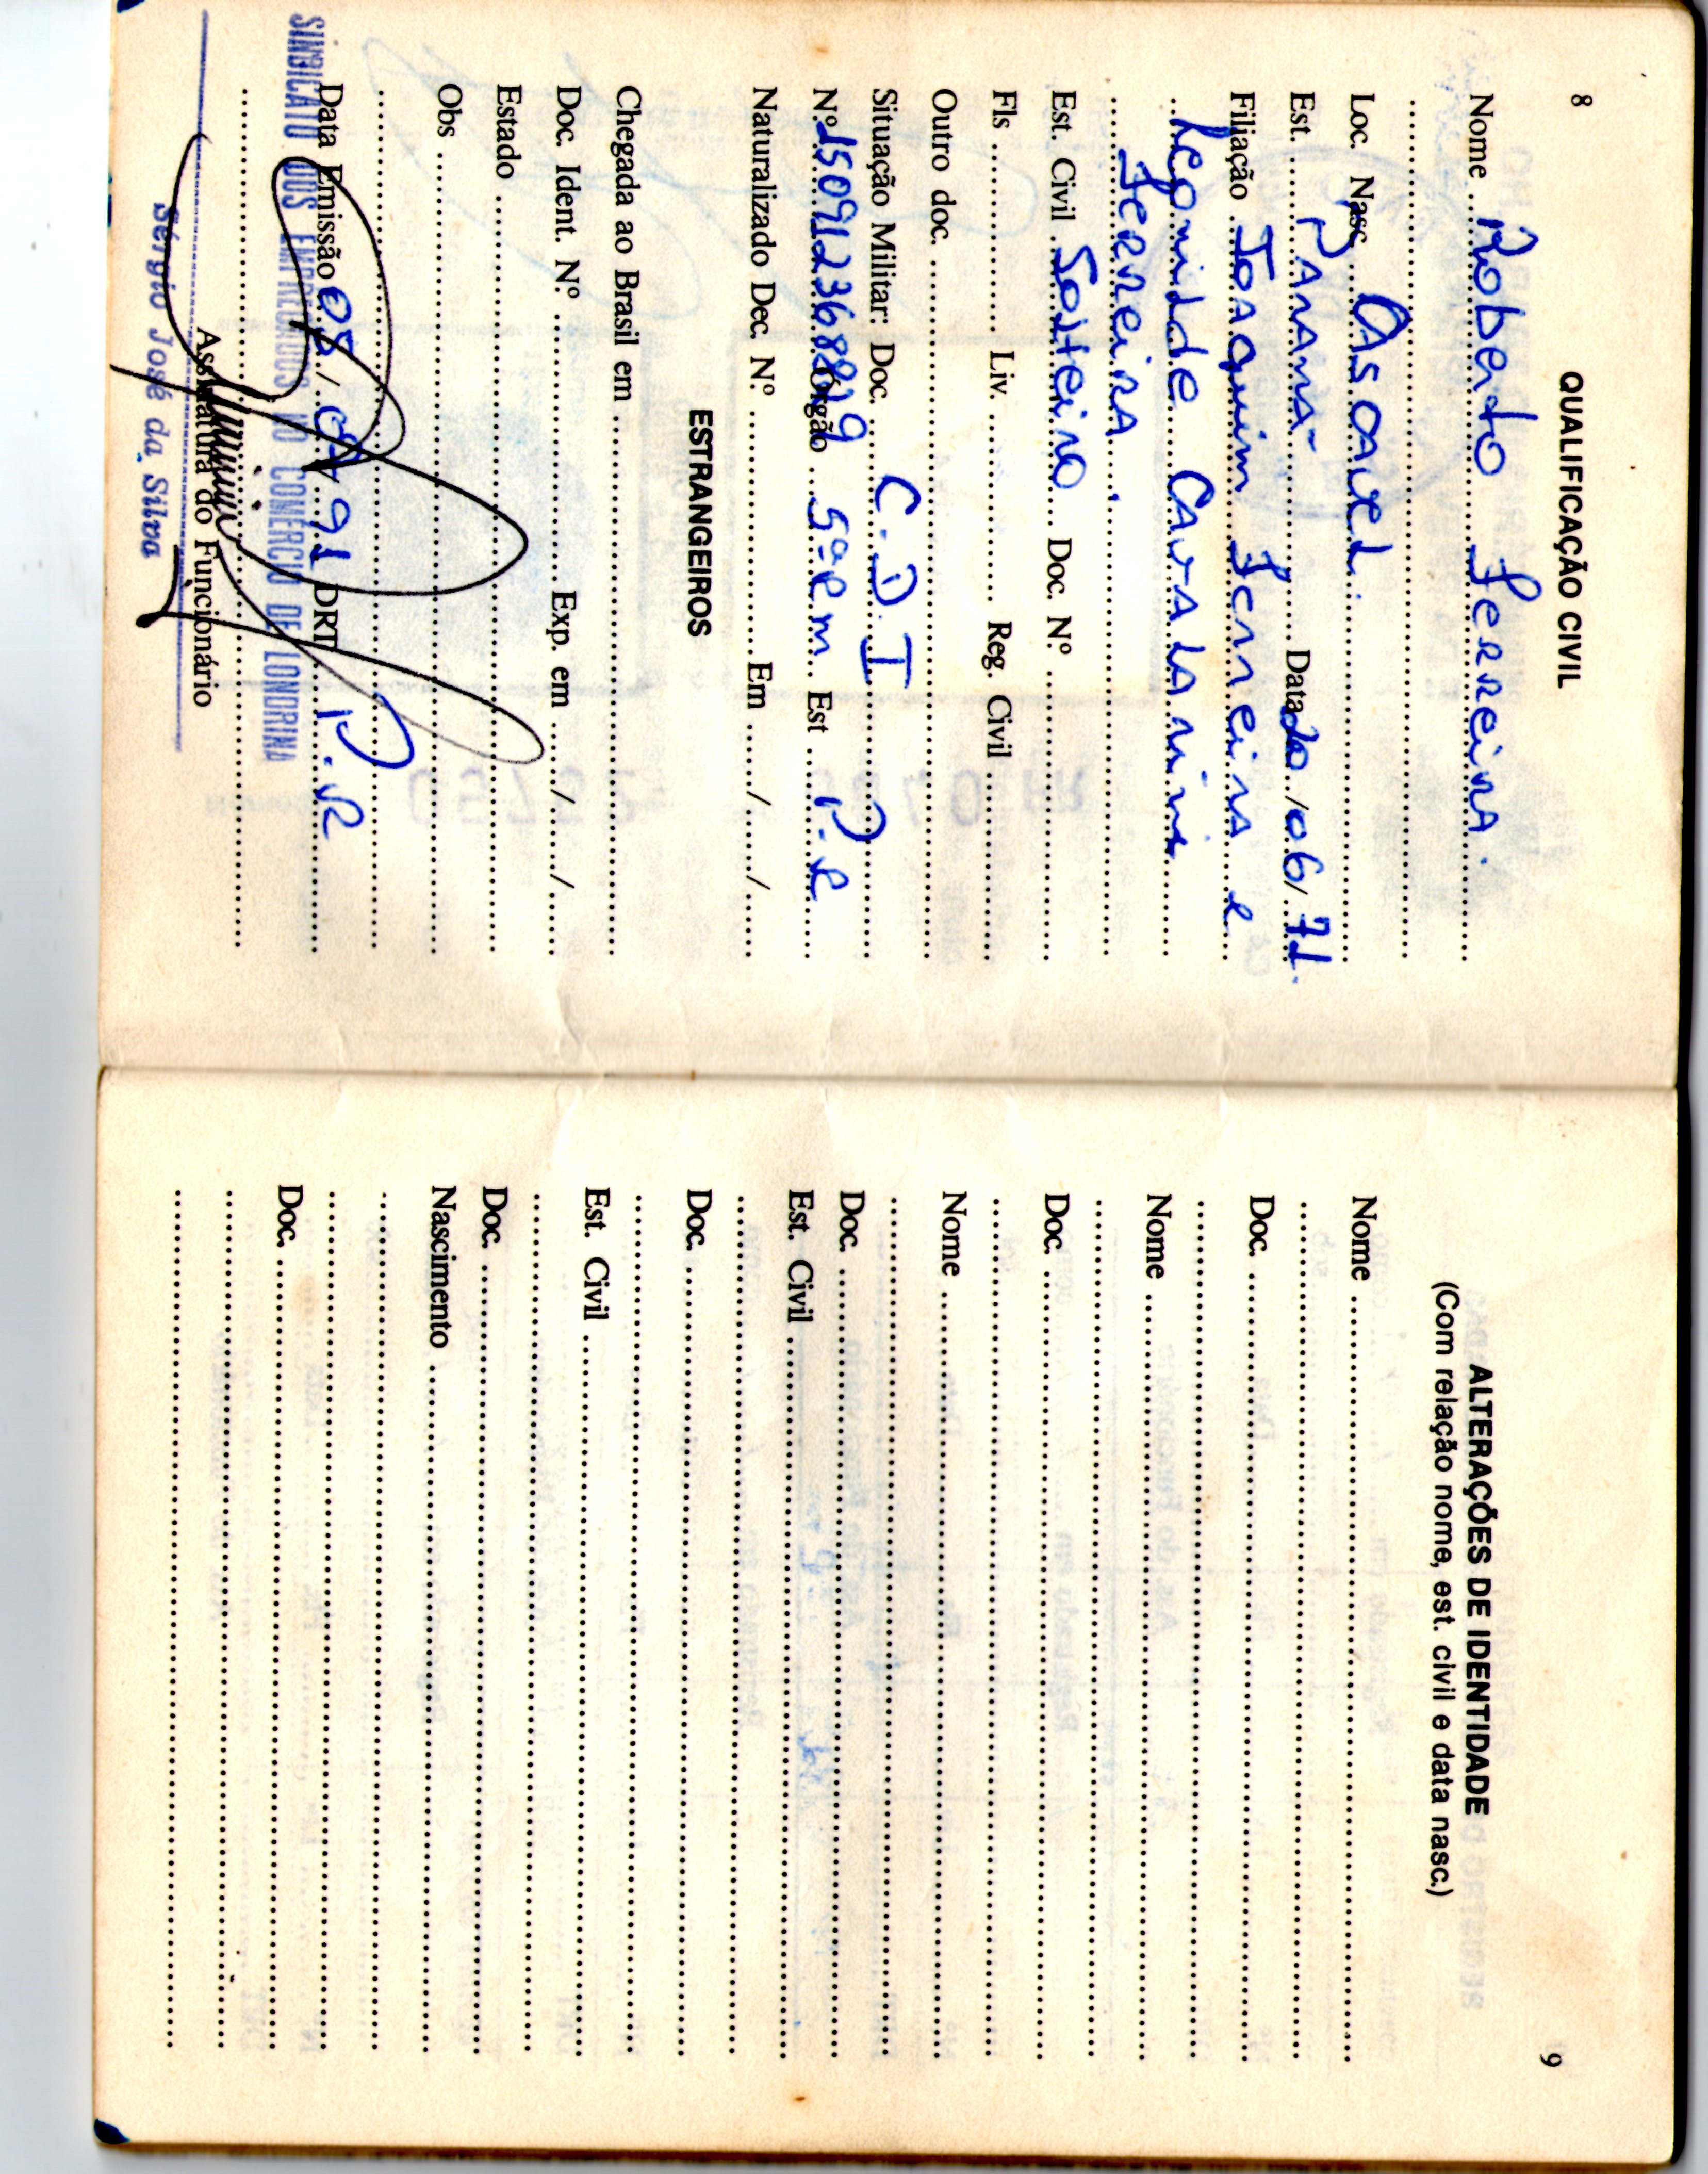 8
QUALIFICAÇÃO CIVIL
Nome Roberto Ferreira.
Loc. Nasc. Cascavel.
Est. Paraná Data 20/06/71.
Filiação Joaquim Ferreira e
Leonilde Cavalarini
Ferreira.
Est. Civil Solteiro Doc. Nº
Fls Liv. Reg. Civil
Outro doc.
Situação Militar: Doc. C.D.I
Nº 150912368819 Órgão 5ª R m Est P.R
Naturalizado Dec. Nº Em / /
ESTRANGEIROS
Chegada ao Brasil em
Doc. Ident. Nº Exp. em / /
Estado
Obs
Data Emissão 08/01/91 DRT P.R
SINDICATO DOS EMPREGADOS NO COMÉRCIO DE LONDRINA
Assinatura do Funcionário
Sérgio José da Silva
9
ALTERAÇÕES DE IDENTIDADE
(Com relação nome, est. civil e data nasc.)
Nome
Doc.
Nome
Doc.
Nome
Doc.
Est. Civil
Doc.
Est. Civil
Doc.
Nascimento
Doc.